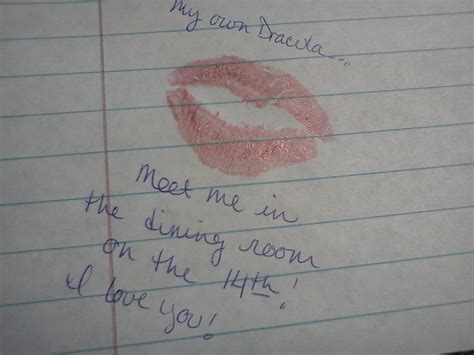 My own Dracula...
Meet me in
the dining room
on the 14th!
I love you!